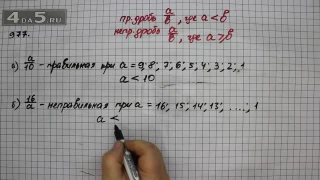 4da5.ru
977.
пр. дробь a/b, где a < b
непр. дробь a/b, где a ⩾ b
а) a/10 - правильная при a = 9; 8; 7; 6; 5; 4; 3; 2; 1
a < 10
б) 16/a - неправильная при a = 16; 15; 14; 13; ....; 1
a <